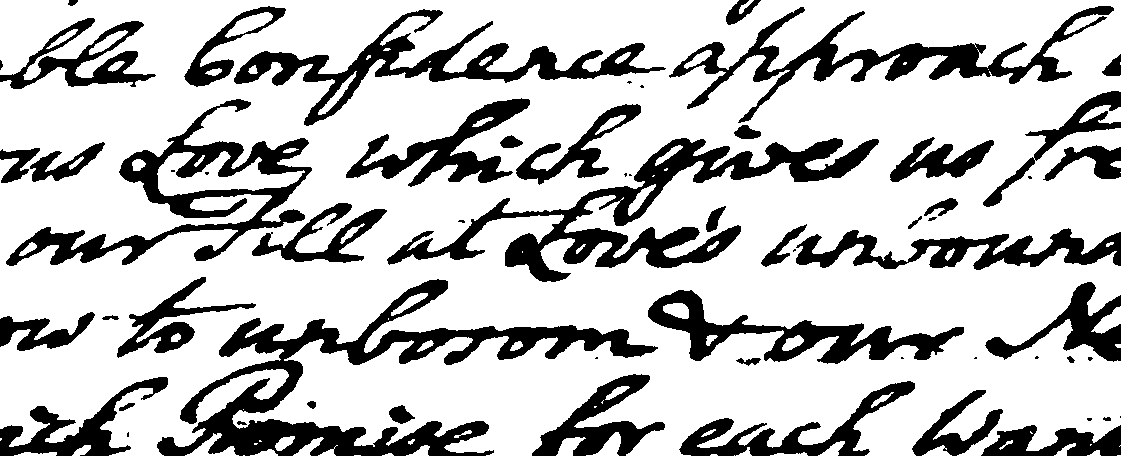 ble Confidence approach
us Love which gives us fre
our Fill at Love's unbound
ow to unbosom & our Ne
ich Promise for each Want